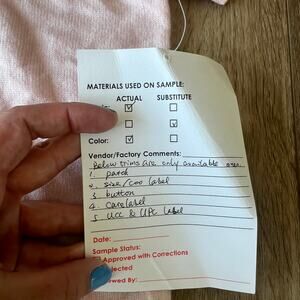 MATERIALS USED ON SAMPLE:
ACTUAL SUBSTITUTE
Color:
Vendor/Factory Comments:
Below trims are only available
1. patch
2. size/coo label
3. button
4. care label
5. UCC & UPC label
Date:
Sample Status:
Approved with Corrections